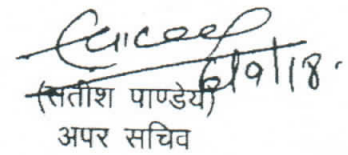 6/9/18.
(सतीश पाण्डेय)
अपर सचिव